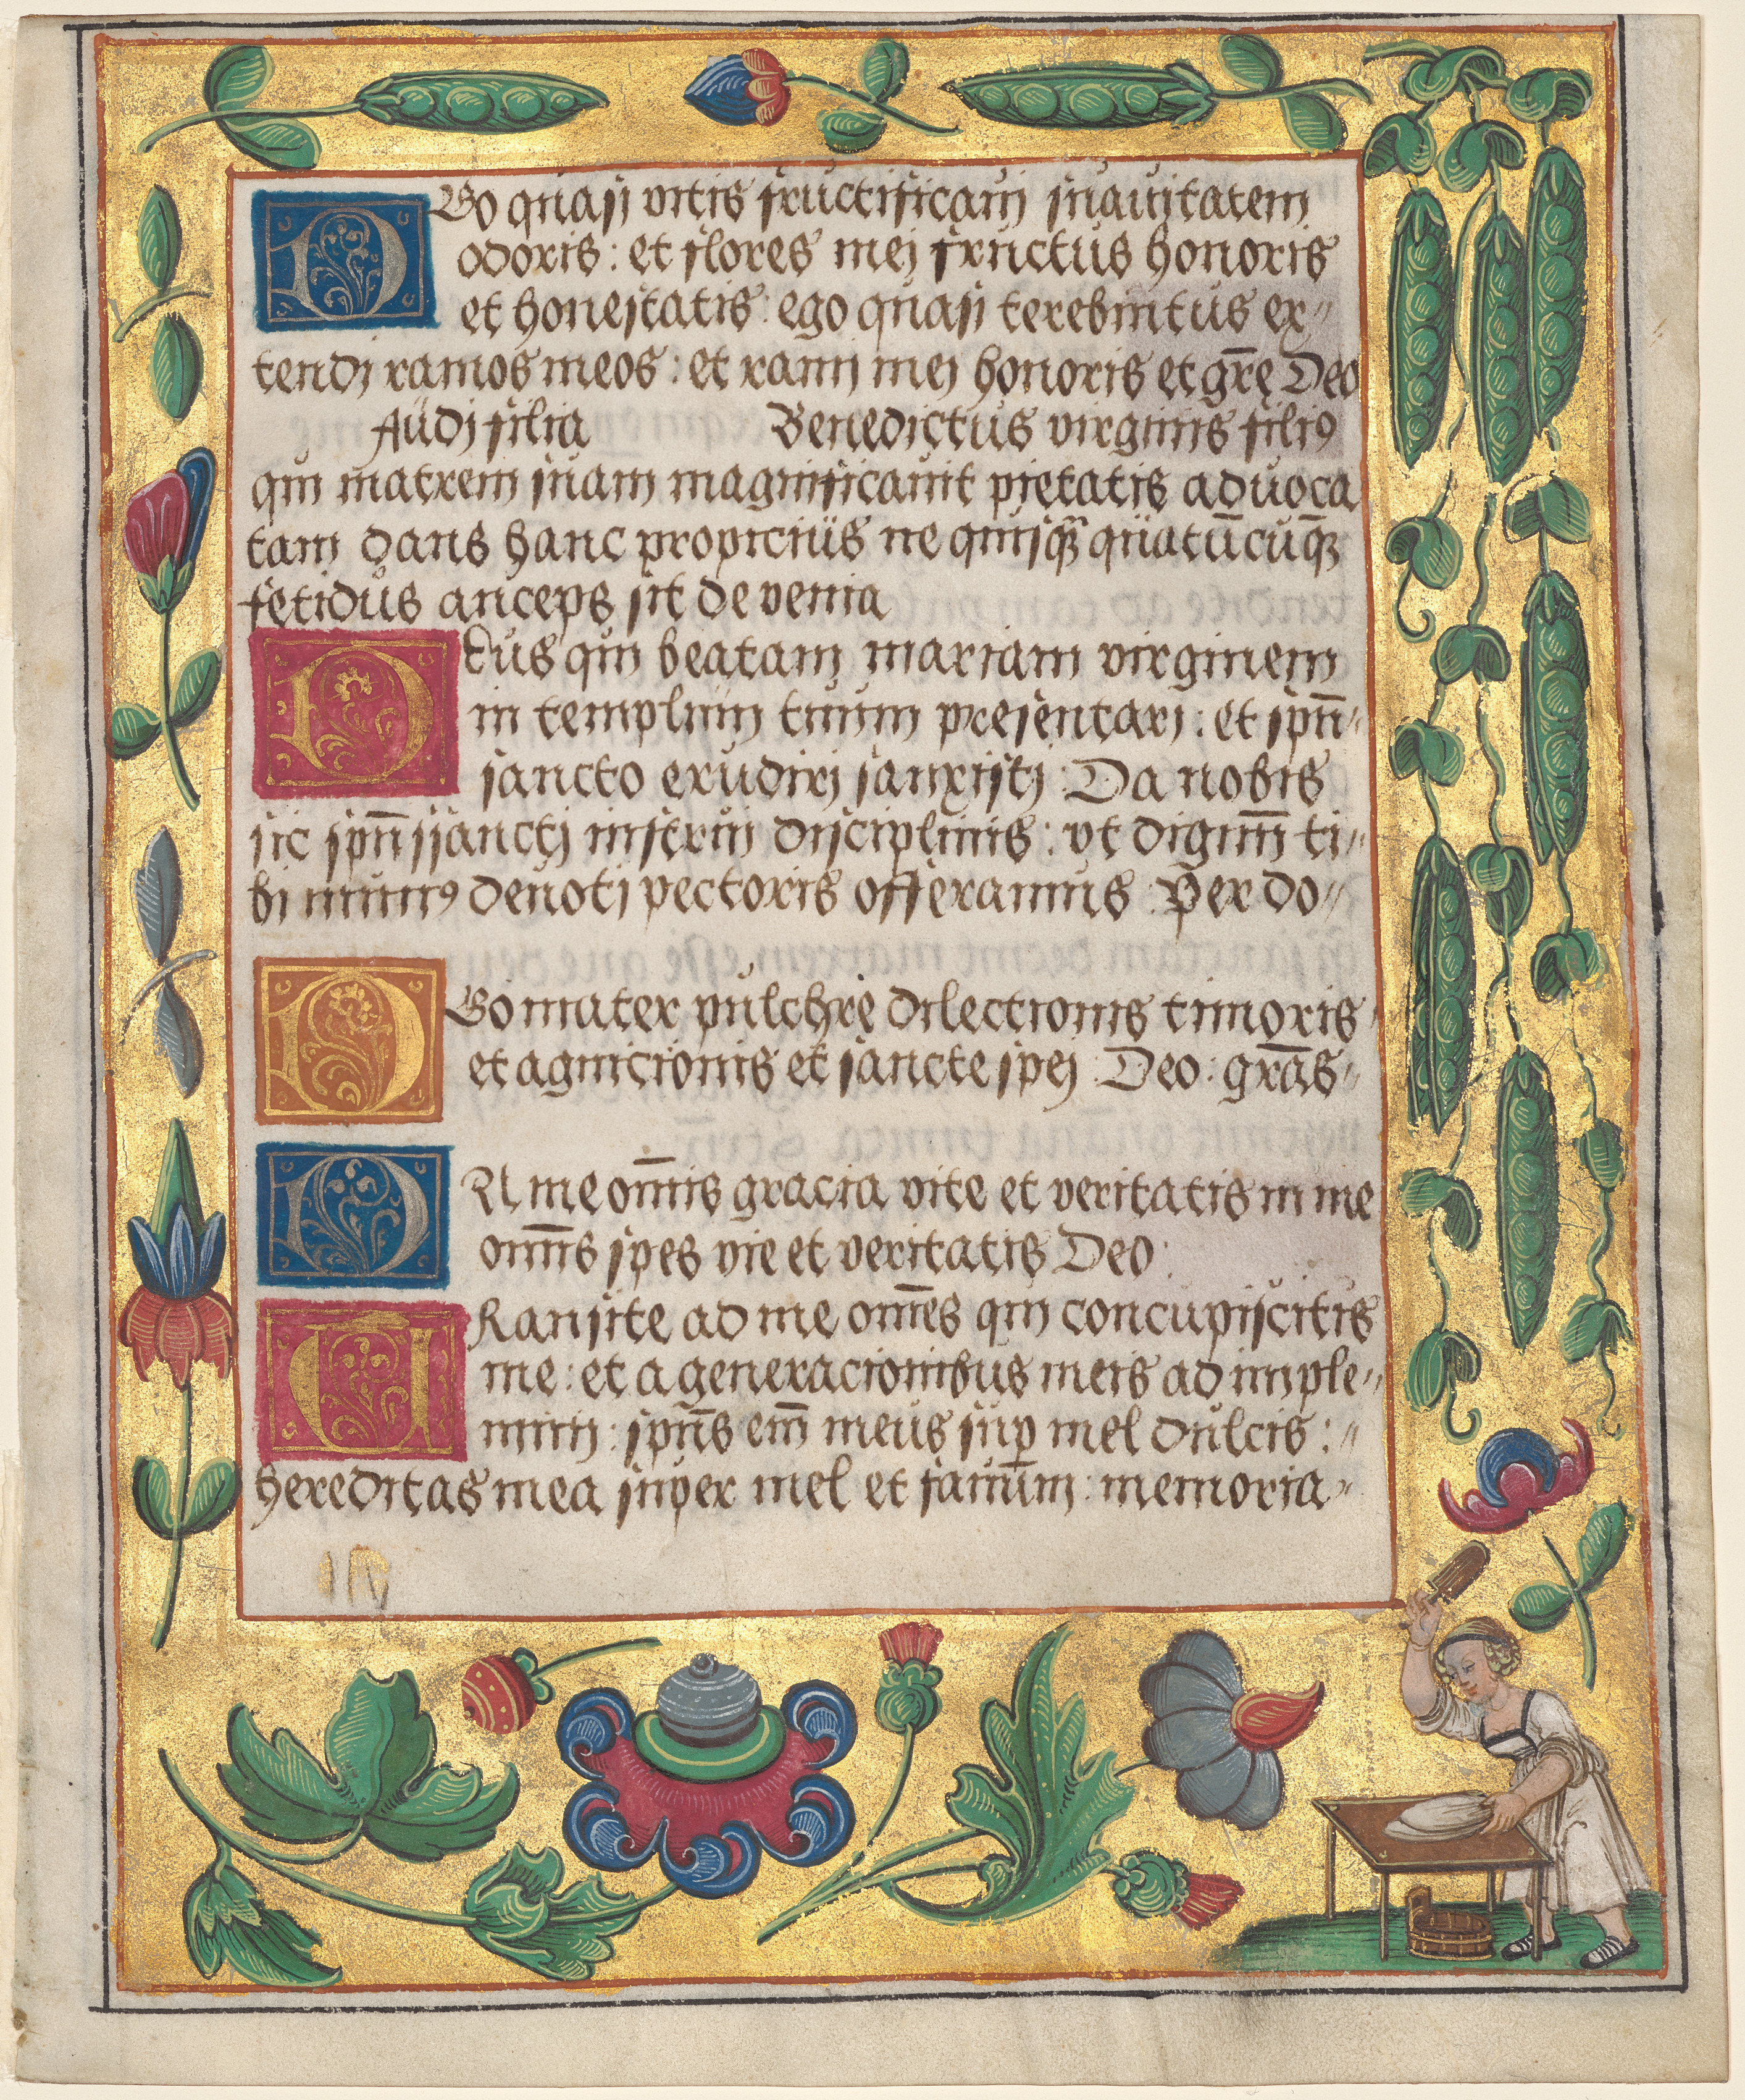 DGo quasi vitis fructificaui suauitatem
odoris : et flores mei fructus honoris
et honestatis : ego quasi terebintus ex〃
tendi ramos meos : et rami mei honoris et gr̄e Deo
Audi filia Benedictus virginis filiꝰ
qui matrem suam magnificauit pietatis aduoca
tam dans hanc propicius ne quisqꝫ quatūcūqꝫ
fetidus anceps sit de venia
DEus qui beatam mariam virginem
in templum tuum presentari : et spū〃
sancto erudiri sanxisti : Da nobis
sic spū ssancti instrui disciplinis : vt dignū ti〃
bi munꝰ deuoti pectoris offeramus : Per do〃
DGo mater pulchre dilectionis timoris
et agnicionis et sancte spei : Deo : grās〃
DN me om̄is gracia vite et veritatis in me
om̄is spes vie et veritatis Deo :
TRansite ad me om̄es qui concupiscitis
me : et a generacionibus meis ad imple〃
mini : spūs em̄ meus sup̲ mel dulcis :〃
hereditas mea super mel et fauum : memoria〃